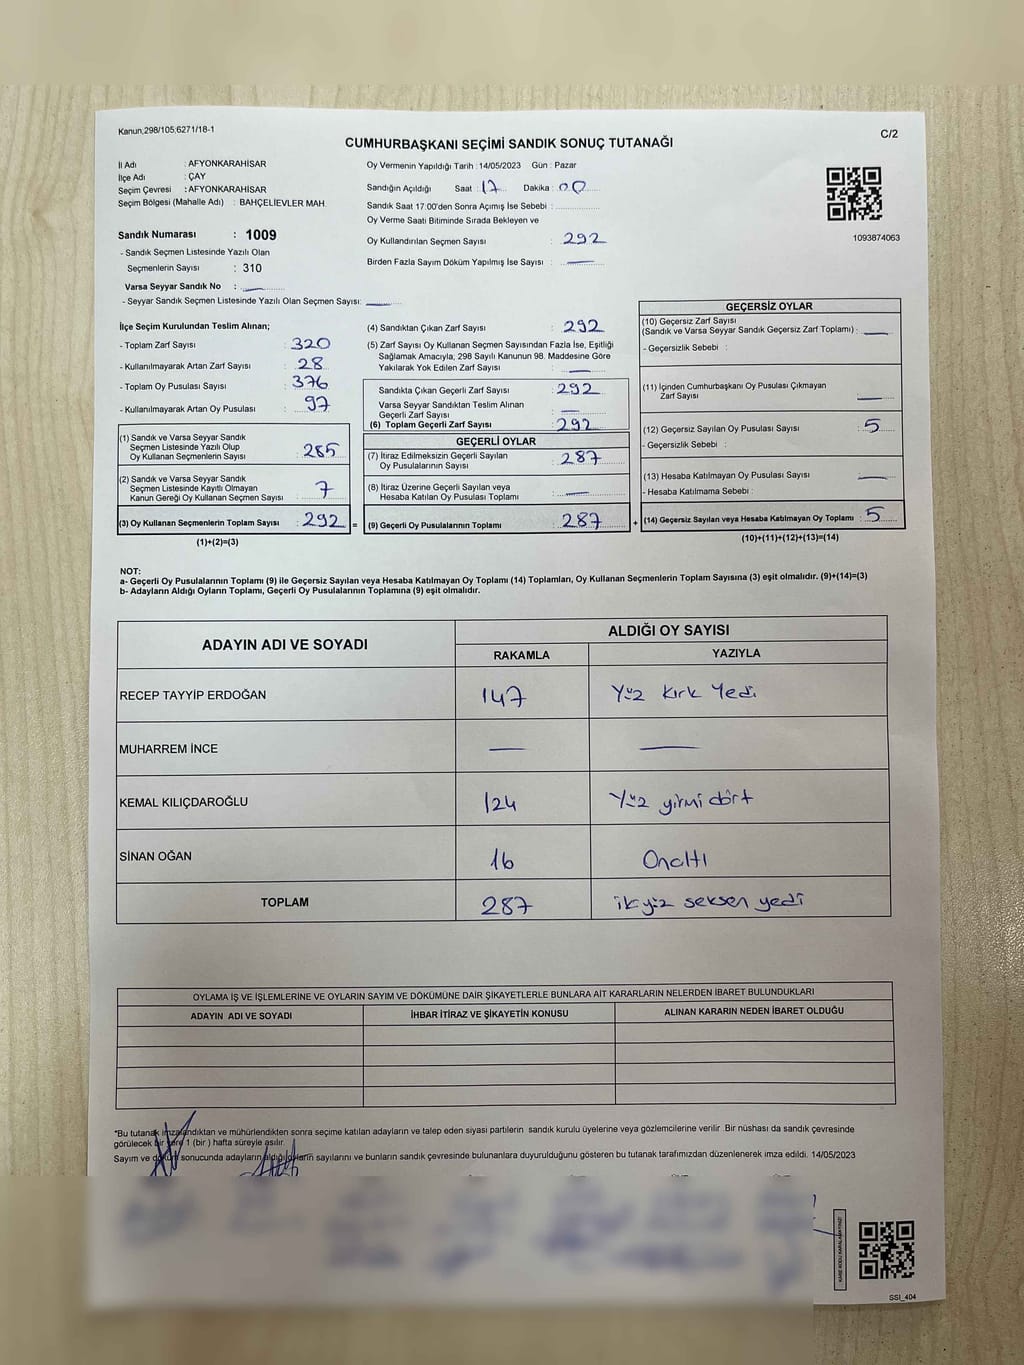 Kanun,298/105;6271/18-1
C/2
CUMHURBAŞKANI SEÇİMİ SANDIK SONUÇ TUTANAĞI
İl Adı : AFYONKARAHİSAR
İlçe Adı : ÇAY
Seçim Çevresi : AFYONKARAHİSAR
Seçim Bölgesi (Mahalle Adı) : BAHÇELİEVLER MAH.
Sandık Numarası : 1009
- Sandık Seçmen Listesinde Yazılı Olan
Seçmenlerin Sayısı : 310
Varsa Seyyar Sandık No : —
- Seyyar Sandık Seçmen Listesinde Yazılı Olan Seçmen Sayısı: —
Oy Vermenin Yapıldığı Tarih : 14/05/2023 Gün : Pazar
Sandığın Açıldığı Saat : 17 Dakika : 00
Sandık Saat 17.00'den Sonra Açımış İse Sebebi :
Oy Verme Saati Bitiminde Sırada Bekleyen ve
Oy Kullandırılan Seçmen Sayısı : 292
Birden Fazla Sayım Döküm Yapılmış İse Sayısı : —
1093874063
İlçe Seçim Kurulundan Teslim Alınan;
- Toplam Zarf Sayısı : 320
- Kullanılmayarak Artan Zarf Sayısı : 28
- Toplam Oy Pusulası Sayısı : 376
- Kullanılmayarak Artan Oy Pusulası : 97
(1) Sandık ve Varsa Seyyar Sandık
Seçmen Listesinde Yazılı Olup
Oy Kullanan Seçmenlerin Sayısı : 285
(2) Sandık ve Varsa Seyyar Sandık
Seçmen Listesinde Kayıtlı Olmayan
Kanun Gereği Oy Kullanan Seçmen Sayısı : 7
(3) Oy Kullanan Seçmenlerin Toplam Sayısı : 292 =
(1)+(2)=(3)
(4) Sandıktan Çıkan Zarf Sayısı : 292
(5) Zarf Sayısı Oy Kullanan Seçmen Sayısından Fazla İse, Eşitliği
Sağlamak Amacıyla, 298 Sayılı Kanunun 98. Maddesine Göre
Yakılarak Yok Edilen Zarf Sayısı : —
Sandıkta Çıkan Geçerli Zarf Sayısı : 292
Varsa Seyyar Sandıktan Teslim Alınan
Geçerli Zarf Sayısı : —
(6) Toplam Geçerli Zarf Sayısı : 292
GEÇERLİ OYLAR
(7) İtiraz Edilmeksizin Geçerli Sayılan
Oy Pusulalarının Sayısı : 287
(8) İtiraz Üzerine Geçerli Sayılan veya
Hesaba Katılan Oy Pusulası Toplamı : —
(9) Geçerli Oy Pusulalarının Toplamı : 287 +
GEÇERSİZ OYLAR
(10) Geçersiz Zarf Sayısı
(Sandık ve Varsa Seyyar Sandık Geçersiz Zarf Toplamı) : —
- Geçersizlik Sebebi :
(11) İçinden Cumhurbaşkanı Oy Pusulası Çıkmayan
Zarf Sayısı : —
(12) Geçersiz Sayılan Oy Pusulası Sayısı : 5
- Geçersizlik Sebebi :
(13) Hesaba Katılmayan Oy Pusulası Sayısı : —
- Hesaba Katılmama Sebebi :
(14) Geçersiz Sayılan veya Hesaba Katılmayan Oy Toplamı : 5
(10)+(11)+(12)+(13)=(14)
NOT:
a- Geçerli Oy Pusulalarının Toplamı (9) ile Geçersiz Sayılan veya Hesaba Katılmayan Oy Toplamı (14) Toplamları, Oy Kullanan Seçmenlerin Toplam Sayısına (3) eşit olmalıdır. (9)+(14)=(3)
b- Adayların Aldığı Oyların Toplamı, Geçerli Oy Pusulalarının Toplamına (9) eşit olmalıdır.
ADAYIN ADI VE SOYADI
ALDIĞI OY SAYISI
RAKAMLA YAZIYLA
RECEP TAYYİP ERDOĞAN 147 Yüz Kırk Yedi
MUHARREM İNCE — —
KEMAL KILIÇDAROĞLU 124 Yüz yirmi dört
SİNAN OĞAN 16 Onaltı
TOPLAM 287 ikiyüz seksen yedi
OYLAMA İŞ VE İŞLEMLERİNE VE OYLARIN SAYIM VE DÖKÜMÜNE DAİR ŞİKAYETLERLE BUNLARA AİT KARARLARIN NELERDEN İBARET BULUNDUKLARI
ADAYIN ADI VE SOYADI İHBAR İTİRAZ VE ŞİKAYETİN KONUSU ALINAN KARARIN NEDEN İBARET OLDUĞU
*Bu tutanak imzalandıktan ve mühürlendikten sonra seçime katılan adayların ve talep eden siyasi partilerin sandık kurulu üyelerine veya gözlemcilerine verilir. Bir nüshası da sandık çevresinde
görülecek bir yere 1 (bir ) hafta süreyle asılır.
Sayım ve döküm sonucunda adayların aldığı oyların sayılarını ve bunların sandık çevresinde bulunanlara duyurulduğunu gösteren bu tutanak tarafımızdan düzenlenerek imza edildi. 14/05/2023
SSI_404